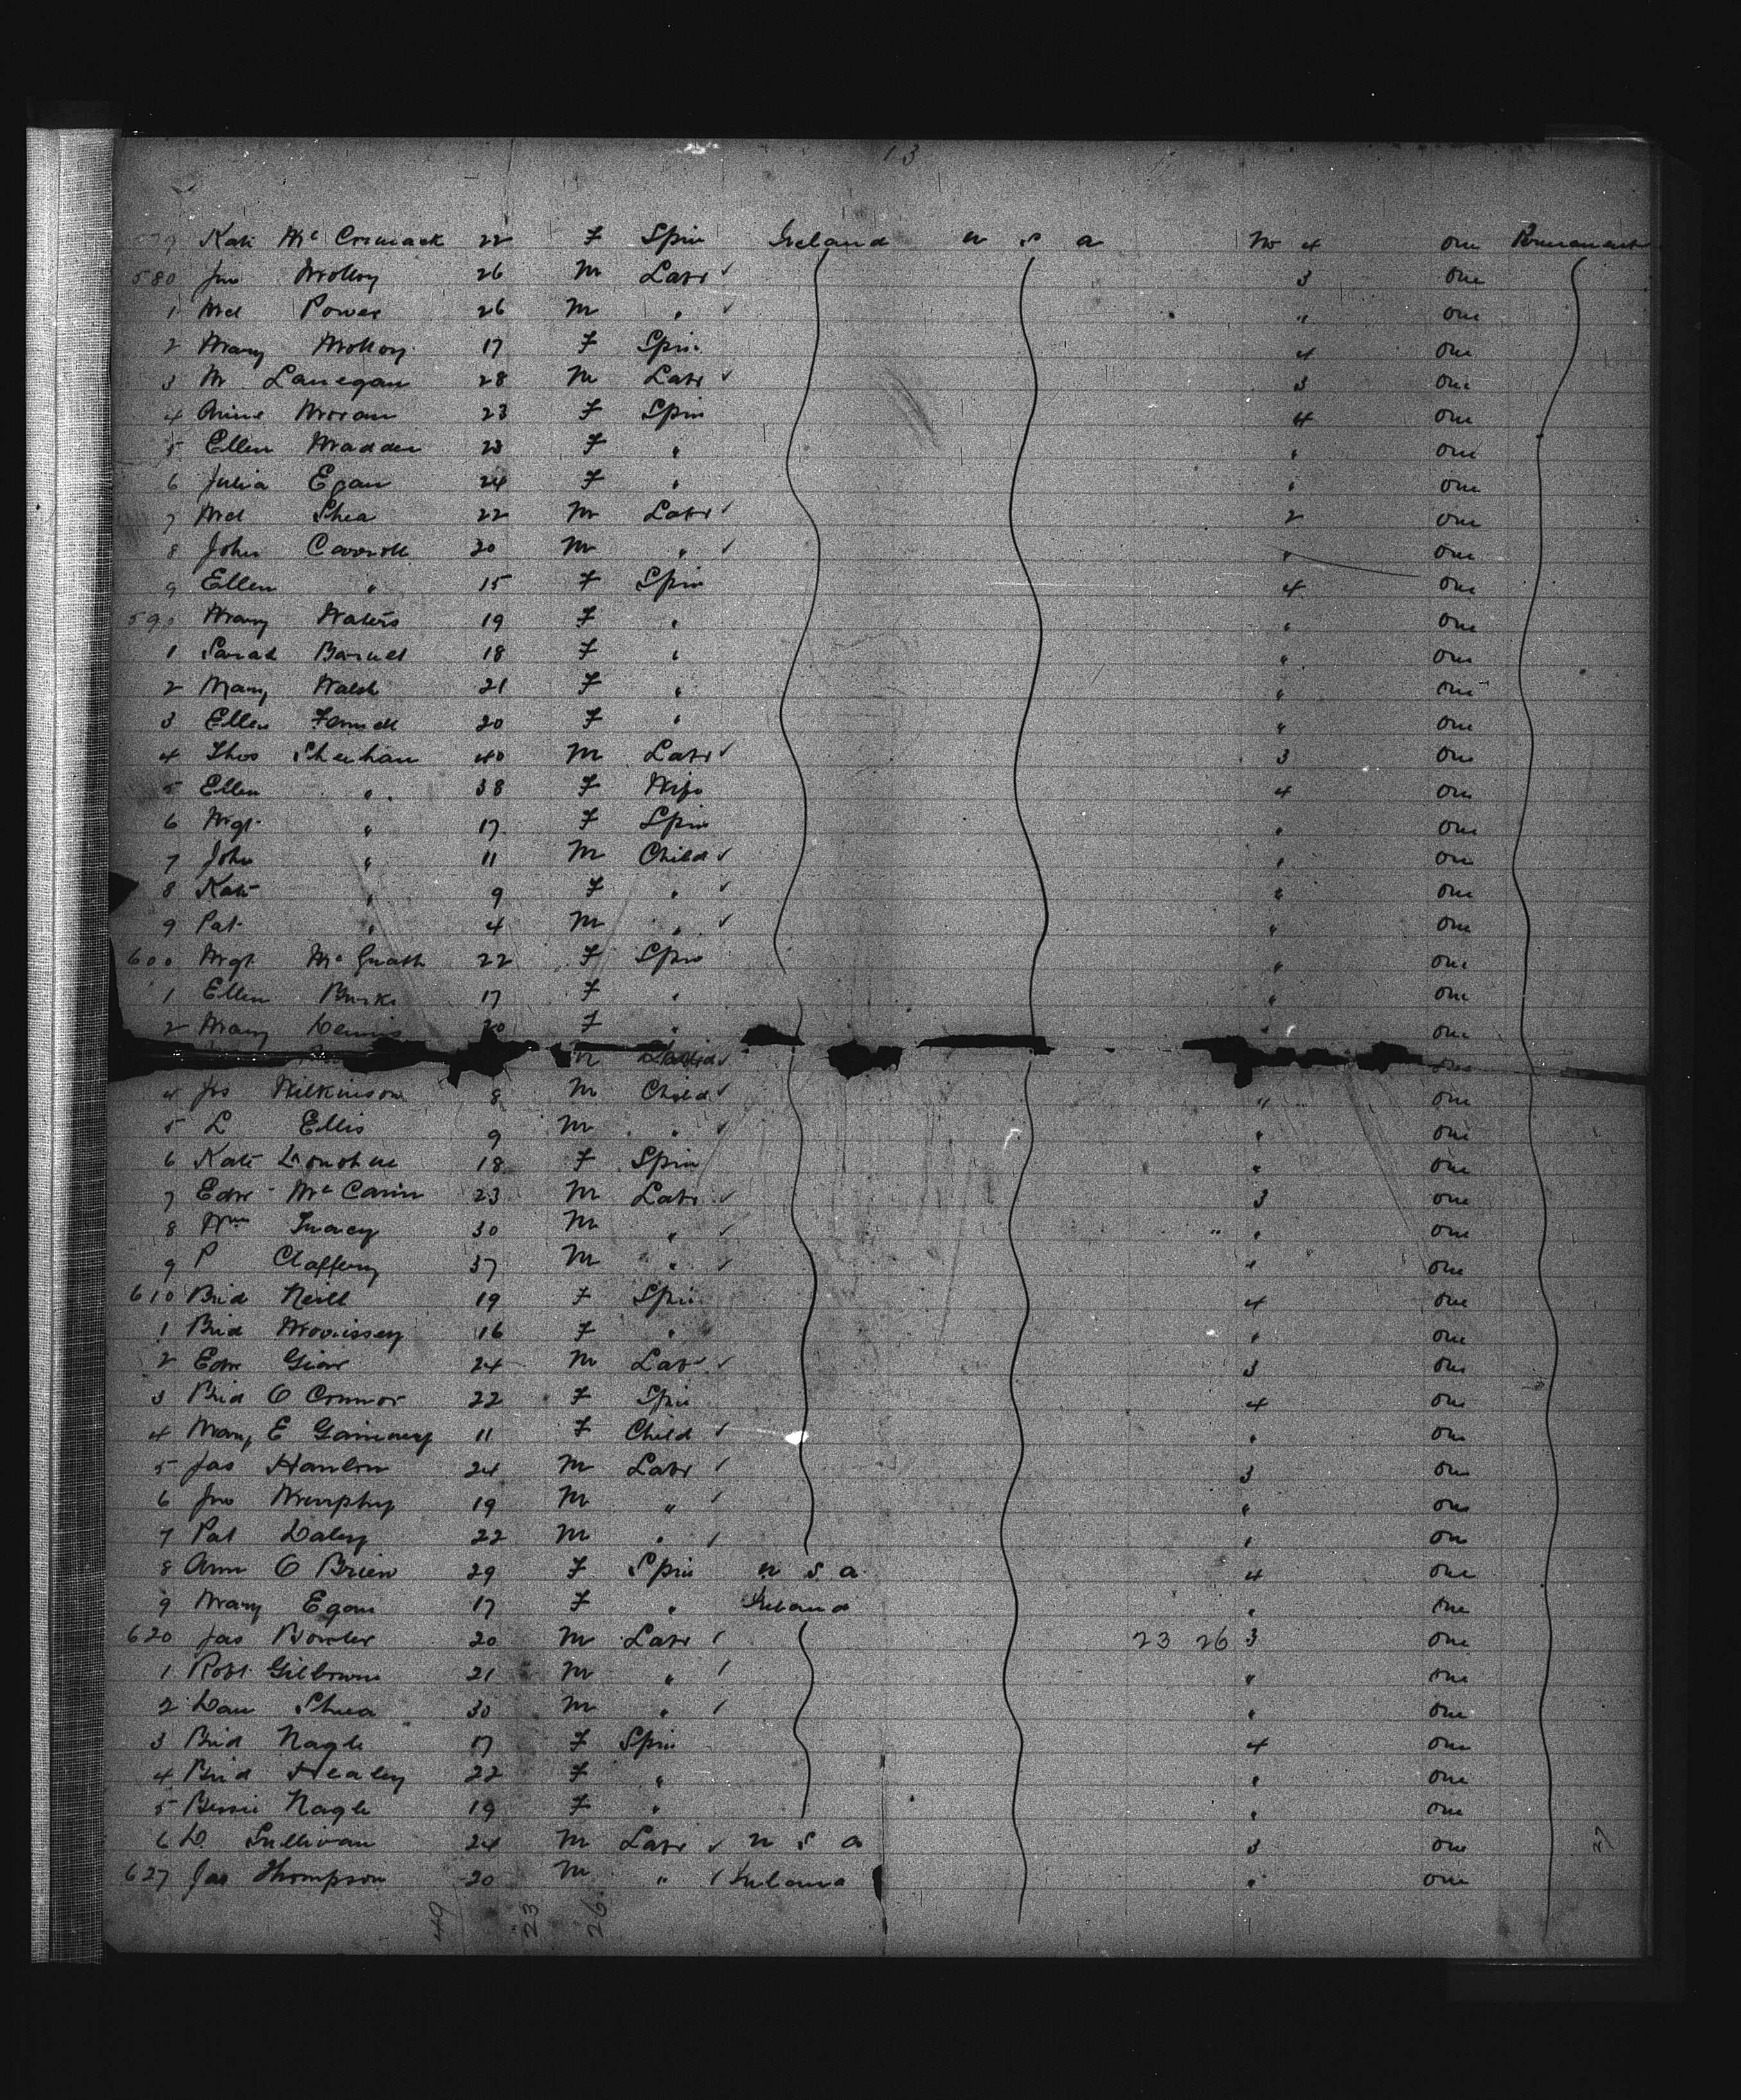 13
Kate Mc Cormack 22 F Spin Ireland U S A No 4 one Permanent
580 Jno Molloy 26 M Labr ✓ 3 one
1 Mcl Power 26 M " ✓ " one
2 Mary Molloy 17 F Spin 4 one
3 M Lanegan 28 M Labr ✓ 3 one
4 Anne Moran 23 F Spin 4 one
5 Ellen Madden 23 F " " one
6 Julia Egan 24 F " " one
7 Mcl Shea 22 M Labr ✓ 2 one
8 John Carroll 30 M " ✓ " one
9 Ellen " 15 F Spin 4 one
590 Mary Waters 19 F " " one
1 Sarah 18 F " " one
2 Mary Walsh 21 F " " one
3 Ellen Fennell 20 F " " one
4 Thos Sheehan 40 M Labr ✓ 3 one
5 Ellen " 38 F Wife 4 one
6 Mgt " 17 F Spin " one
7 John " 11 M Child ✓ " one
8 Kate " 9 F " ✓ " one
9 Pat " 4 M " ✓ " one
600 Mgt Mc Grath 22 F Spin " one
1 Ellen Burke 17 F " " one
2 Mary Dennis 20 F " " one
4 Jos Wilkinson 8 M Child ✓ " one
5 L Ellis 9 M " ✓ " one
6 Kate Donohue 18 F Spin " one
7 Edw Mc Cann 23 M Labr ✓ 3 one
8 Wm Tracey 30 M " ✓ " one
9 P Claffery 37 M " ✓ " one
610 Brid Neill 19 F Spin 4 one
1 Brid Morrissey 16 F " " one
2 Edw 24 M Labr ✓ 3 one
3 Brid O Connor 22 F Spin 4 one
4 Mary E 11 F Child ✓ " one
5 Jas Hanlon 24 M Labr ✓ 3 one
6 Jno Murphy 19 M " ✓ " one
7 Pat Daley 22 M " ✓ " one
8 Ann O Brien 29 F Spin U S A 4 one
9 Mary Egan 17 F " Ireland " one
620 Jas Bowler 20 M Labr ✓ 23 26 3 one
1 Robt Gilbourne 21 M " ✓ " one
2 Dan Shea 30 M " ✓ " one
3 Brid Nagle 17 F Spin 4 one
4 Brid Healey 22 F " " one
5 Bessie Nagle 19 F " " one
6 D Sullivan 24 M Labr ✓ U S A 3 one
627 Jas Thompson 20 M " ✓ Ireland " one
49 23 26